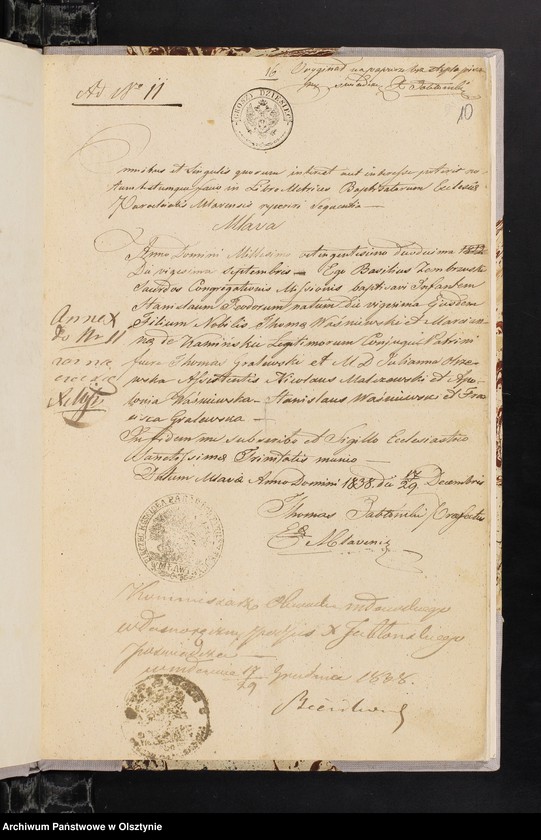 16
Oryginał na papierze bez stępla
X Jabłoński
Ad No 11
10
GROSZY DZIESIĘĆ
Omnibus et Singulis quorum interest aut interesse poterit
in Libro Metrices Baptisatorum Ecclesiæ
Parochialis Mlavensis reperiri Sequentia —
Mlava
Anno Domini Millesimo octingentesimo duodecimo
Die vigesima Septembris — Ego Basilius Zembrzuski
Sacerdos Congregationis Missionis baptisavi Infantem
Stanislaum Teodorum natum die vigesima Ejusdem
Filium Nobilis Thomæ Waśniewski et
de Kamińskie Legitimorum Conjugum Patrini
fuere Thomas Gralewski et M D Julianna
Assistentis Nicolaus et
Waśniewska — Stanislaus Waśniewski et Fran
cisca Gralewska —
In fidem me subscribo et Sigillo Ecclesiastico
Sanctissimæ Trinitatis munio —
Datum Mlavæ Anno Domini 1838 die 17/29 Decembris
Thomas Jabłoński Præfectus
Mlavensis
Annex
do Nr 11
Kommissarz Obwodu mławskiego
własnoręczny podpis X Jabłońskiego
poświadcza —
w Mławie 17/29 Grudnia 1838.
Archiwum Państwowe w Olsztynie